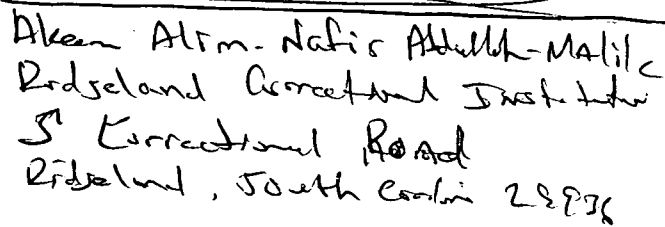 Akeem Alim-Nafis Abdullah-Malik
Ridgeland Correctional Institution
5 Correctional Road
Ridgeland, South Carolina 29936